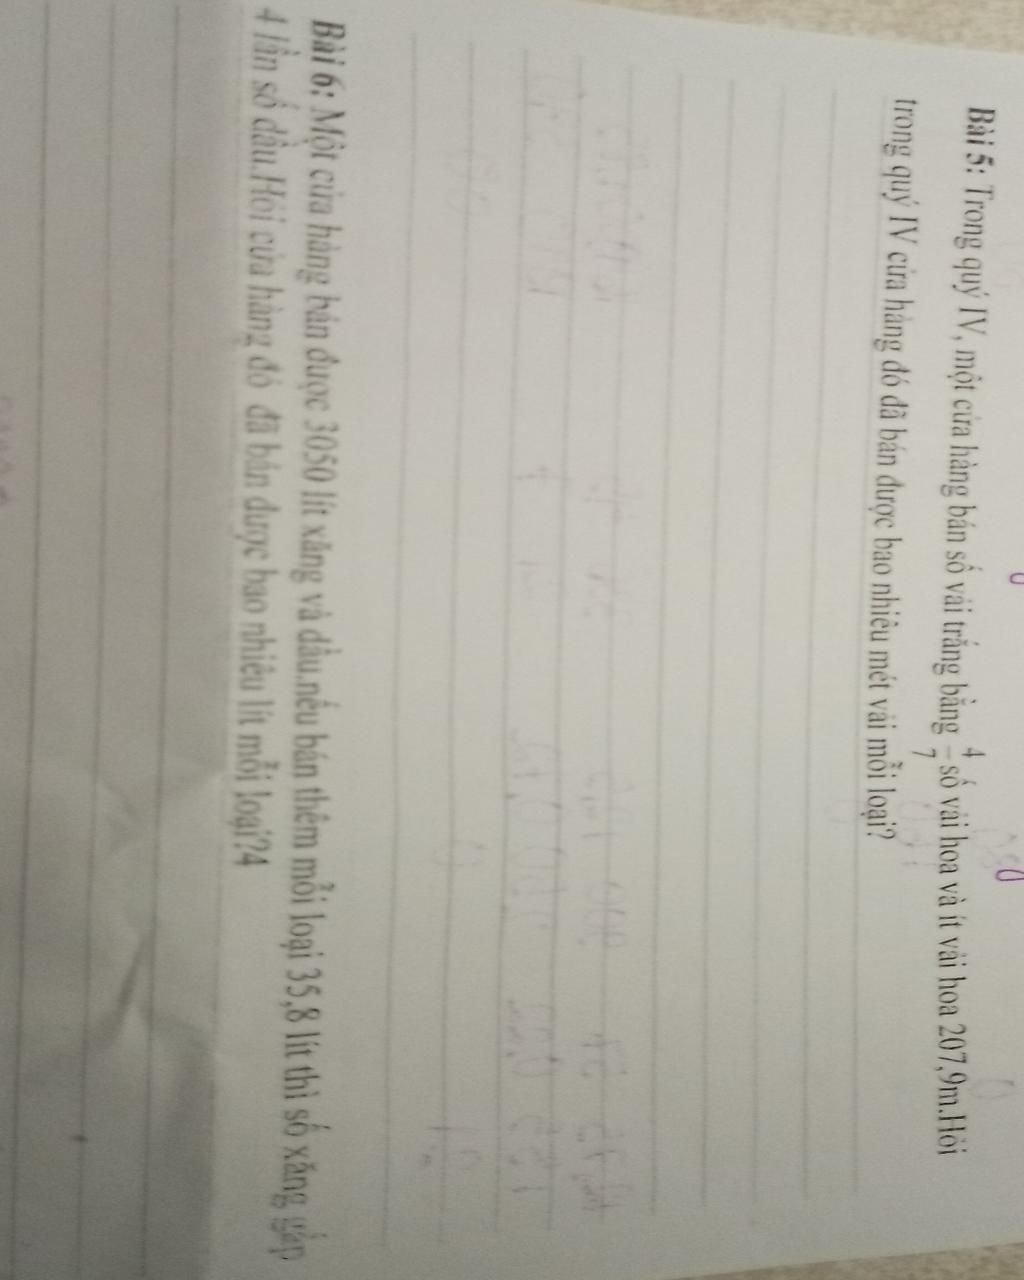 Bài 5: Trong quý IV, một cửa hàng bán số vải trắng bằng 4/7 số vải hoa và ít vải hoa 207,9m.Hỏi
trong quý IV cửa hàng đó đã bán được bao nhiêu mét vải mỗi loại?
Bài 6: Một cửa hàng bán được 3050 lít xăng và dầu.nếu bán thêm mỗi loại 35,8 lít thì số xăng gấp
4 lần số dầu.Hỏi cửa hàng đó đã bán được bao nhiêu lít mỗi loại?4